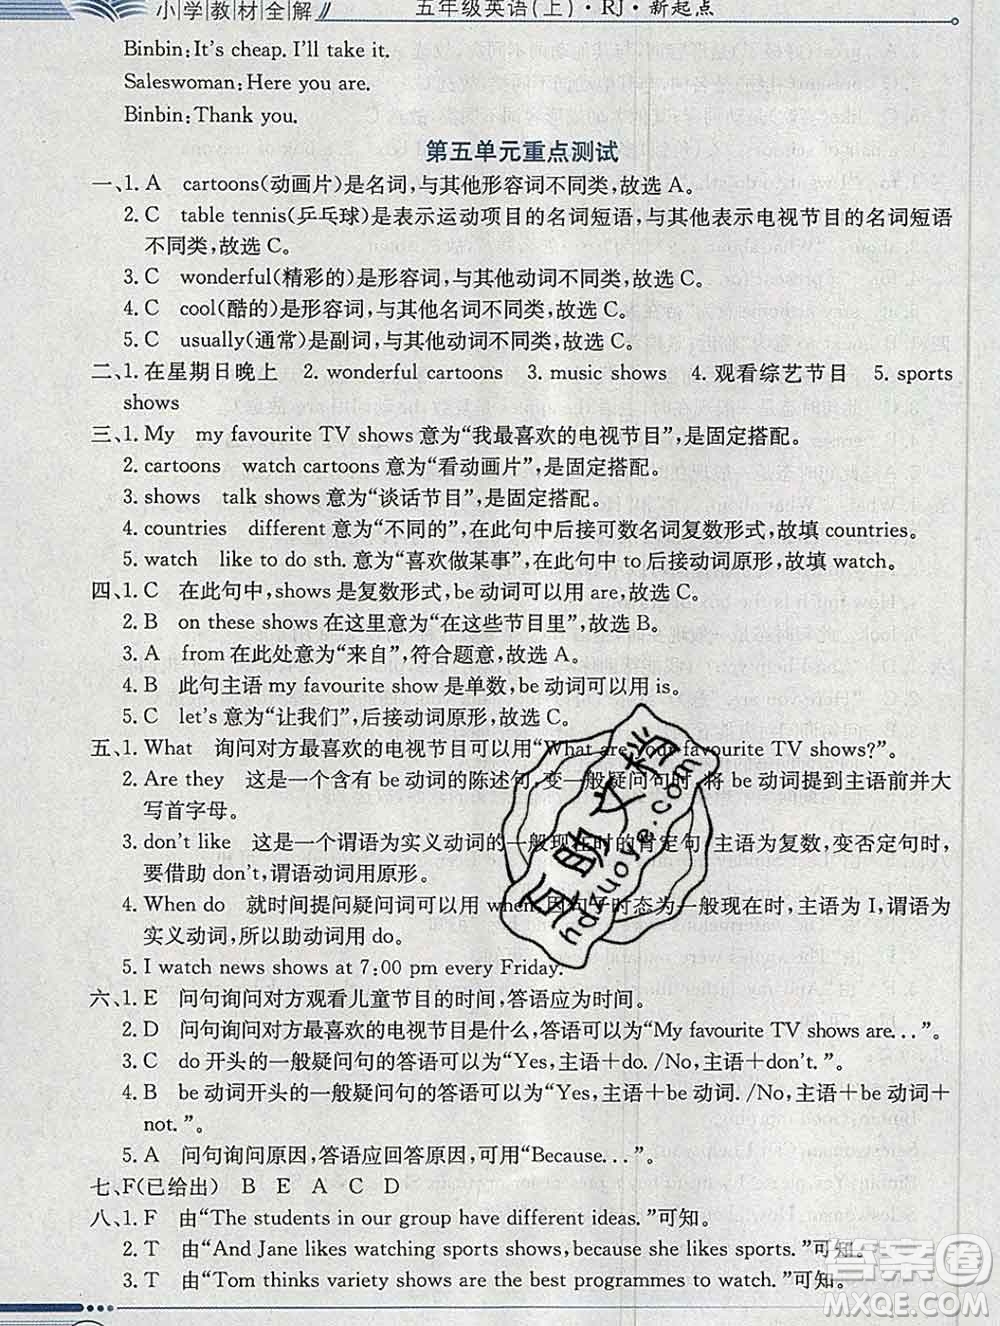 小学教材全解 五年级英语(上)·RJ·新起点
Binbin:It's cheap. I'll take it.
Saleswoman:Here you are.
Binbin:Thank you.
第五单元重点测试
一、1. A cartoons(动画片)是名词,与其他形容词不同类,故选 A。
2. C table tennis(乒乓球)是表示运动项目的名词短语,与其他表示电视节目的名词短语
不同类,故选 C。
3. C wonderful(精彩的)是形容词,与其他动词不同类,故选 C。
4. C cool(酷的)是形容词,与其他名词不同类,故选 C。
5. C usually(通常)是副词,与其他动词不同类,故选 C。
二、1. 在星期日晚上 2. wonderful cartoons 3. music shows 4. 观看综艺节目 5. sports
shows
三、1. My my favourite TV shows 意为“我最喜欢的电视节目”,是固定搭配。
2. cartoons watch cartoons 意为“看动画片”,是固定搭配。
3. shows talk shows 意为“谈话节目”,是固定搭配。
4. countries different 意为“不同的”,在此句中后接可数名词复数形式,故填 countries。
5. watch like to do sth. 意为“喜欢做某事”,在此句中 to 后接动词原形,故填 watch。
四、1. C 在此句中,shows 是复数形式,be 动词可以用 are,故选 C。
2. B on these shows 在这里意为“在这些节目里”,故选 B。
3. A from 在此处意为“来自”,符合题意,故选 A。
4. B 此句主语 my favourite show 是单数,be 动词可以用 is。
5. C let's 意为“让我们”,后接动词原形,故选 C。
五、1. What 询问对方最喜欢的电视节目可以用“What are your favourite TV shows?”。
2. Are they 这是一个含有 be 动词的陈述句,变一般疑问句时,将 be 动词提到主语前并大
写首字母。
3. don't like 这是一个谓语为实义动词的一般现在时的肯定句,主语为复数,变否定句时,
要借助 don't,谓语动词用原形。
4. When do 就时间提问疑问词可以用 when,因句子时态为一般现在时,主语为 I,谓语为
实义动词,所以助动词用 do。
5. I watch news shows at 7:00 pm every Friday.
六、1. E 问句询问对方观看儿童节目的时间,答语应为时间。
2. D 问句询问对方最喜欢的电视节目是什么,答语可以为“My favourite TV shows are...”。
3. C do 开头的一般疑问句的答语可以为“Yes,主语+do. /No,主语+don't.”。
4. B be 动词开头的一般疑问句的答语可以为“Yes,主语+be 动词. /No,主语+be 动词+
not.”。
5. A 问句询问原因,答语应回答原因,可用“Because...”。
七、F(已给出) B E A C D
八、1. F 由“The students in our group have different ideas.”可知。
2. T 由“And Jane likes watching sports shows,because she likes sports.”可知。
3. T 由“Tom thinks variety shows are the best programmes to watch.”可知。
答案圈
MXQE.COM